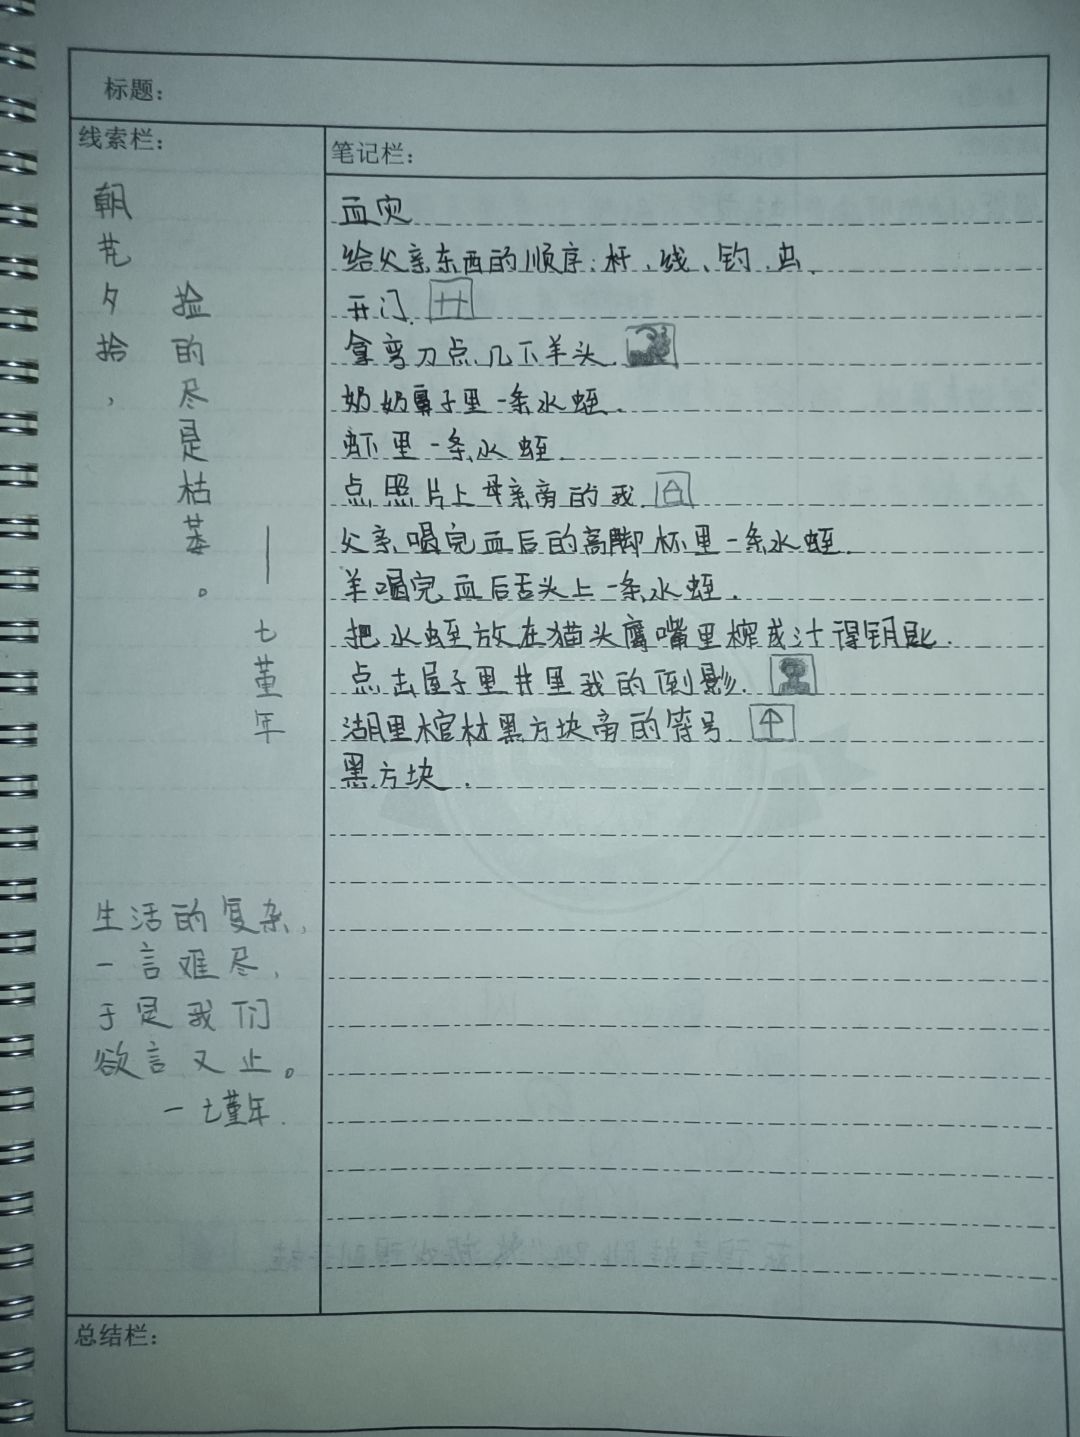 标题：
线索栏：
朝花夕拾，
捡的尽是枯萎。
——七堇年
生活的复杂，
一言难尽，
于是我们
欲言又止。
一七堇年.
笔记栏：
血灾
给父亲东西的顺序：杆、线、钓、虫.
开门.
拿弯刀点几下羊头.
奶奶鼻子里一条水蛭.
虾里一条水蛭.
点照片上母亲旁的我.
父亲喝完血后的高脚杯里一条水蛭.
羊喝完血后舌头上一条水蛭.
把水蛭放在猫头鹰嘴里榨成汁得钥匙.
点击屋子里井里我的倒影.
湖里棺材黑方块旁的符号.
黑方块.
总结栏：